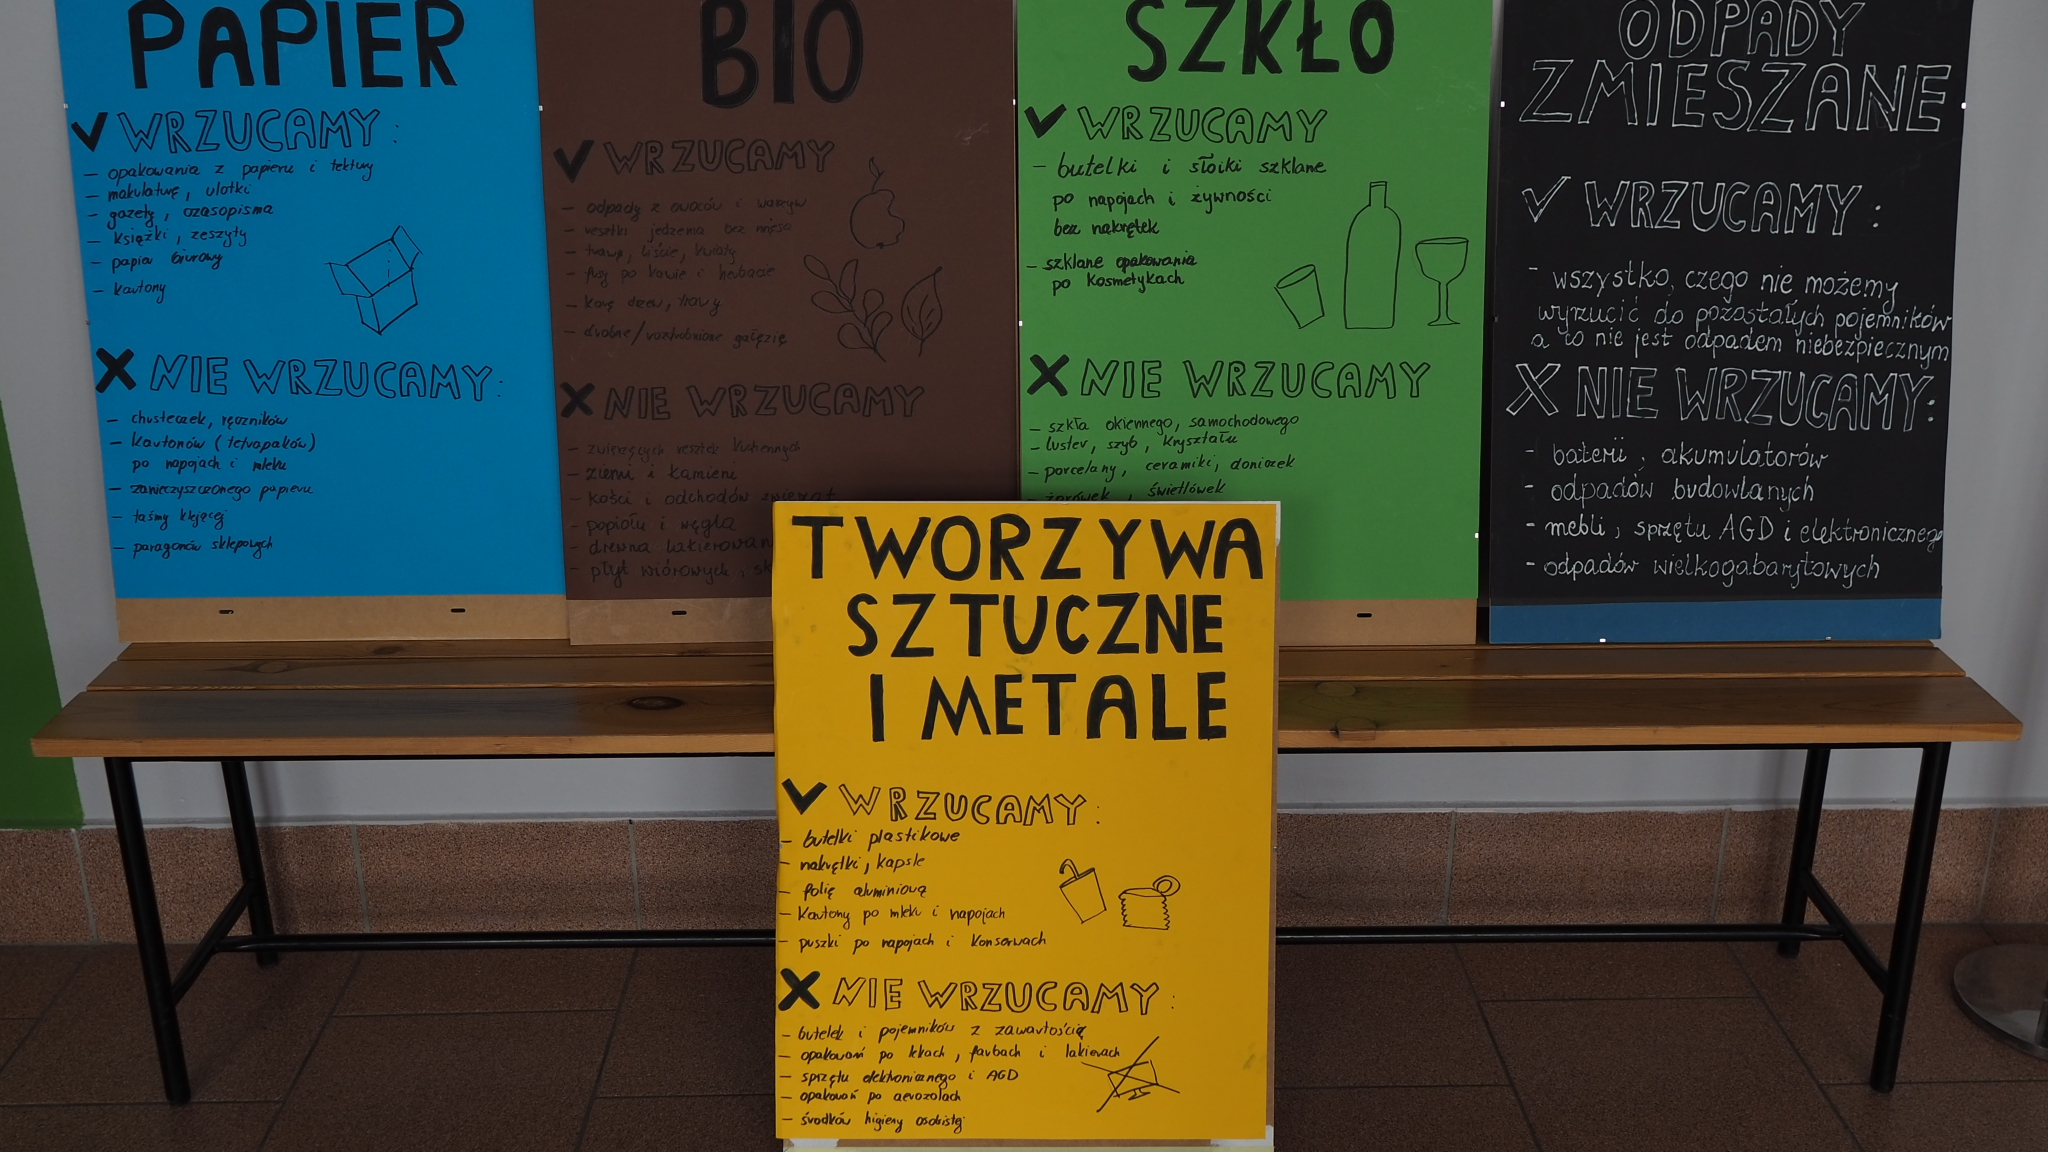 PAPIER
WRZUCAMY:
- opakowania z papieru i tektury
- makulaturę, ulotki
- gazety, czasopisma
- książki, zeszyty
- papier biurowy
- kartony
NIE WRZUCAMY:
- chusteczek, ręczników
- kartonów (tetrapaków)
po napojach i mleku
- zanieczyszczonego papieru
- taśmy klejącej
- paragonów sklepowych
BIO
WRZUCAMY
- odpady z owoców i warzyw
- resztki jedzenia bez mięsa
- trawę, liście, kwiaty
- fusy po kawie i herbacie
- korę drzew, trawy
- drobne/rozdrobnione gałęzie
NIE WRZUCAMY
- zwierzęcych resztek kuchennych
- ziemi i kamieni
- kości i odchodów zwierząt
- popiołu i węgla
- drewna lakierowan
- płyt wiórowych, sk
SZKŁO
WRZUCAMY
- butelki i słoiki szklane
po napojach i żywności
bez nakrętek
- szklane opakowania
po kosmetykach
NIE WRZUCAMY
- szkła okiennego, samochodowego
- luster, szyb, kryształu
- porcelany, ceramiki, doniczek
- żarówek, świetlówek
ODPADY
ZMIESZANE
WRZUCAMY:
- wszystko, czego nie możemy
wyrzucić do pozostałych pojemników
a co nie jest odpadem niebezpiecznym
NIE WRZUCAMY:
- baterii, akumulatorów
- odpadów budowlanych
- mebli, sprzętu AGD i elektronicznego
- odpadów wielkogabarytowych
TWORZYWA
SZTUCZNE
I METALE
WRZUCAMY:
- butelki plastikowe
- nakrętki, kapsle
- folię aluminiową
- kartony po mleku i napojach
- puszki po napojach i konserwach
NIE WRZUCAMY:
- butelek i pojemników z zawartością
- opakowań po lekach, farbach i lakierach
- sprzętu elektronicznego i AGD
- opakowań po aerozolach
- środków higieny osobistej